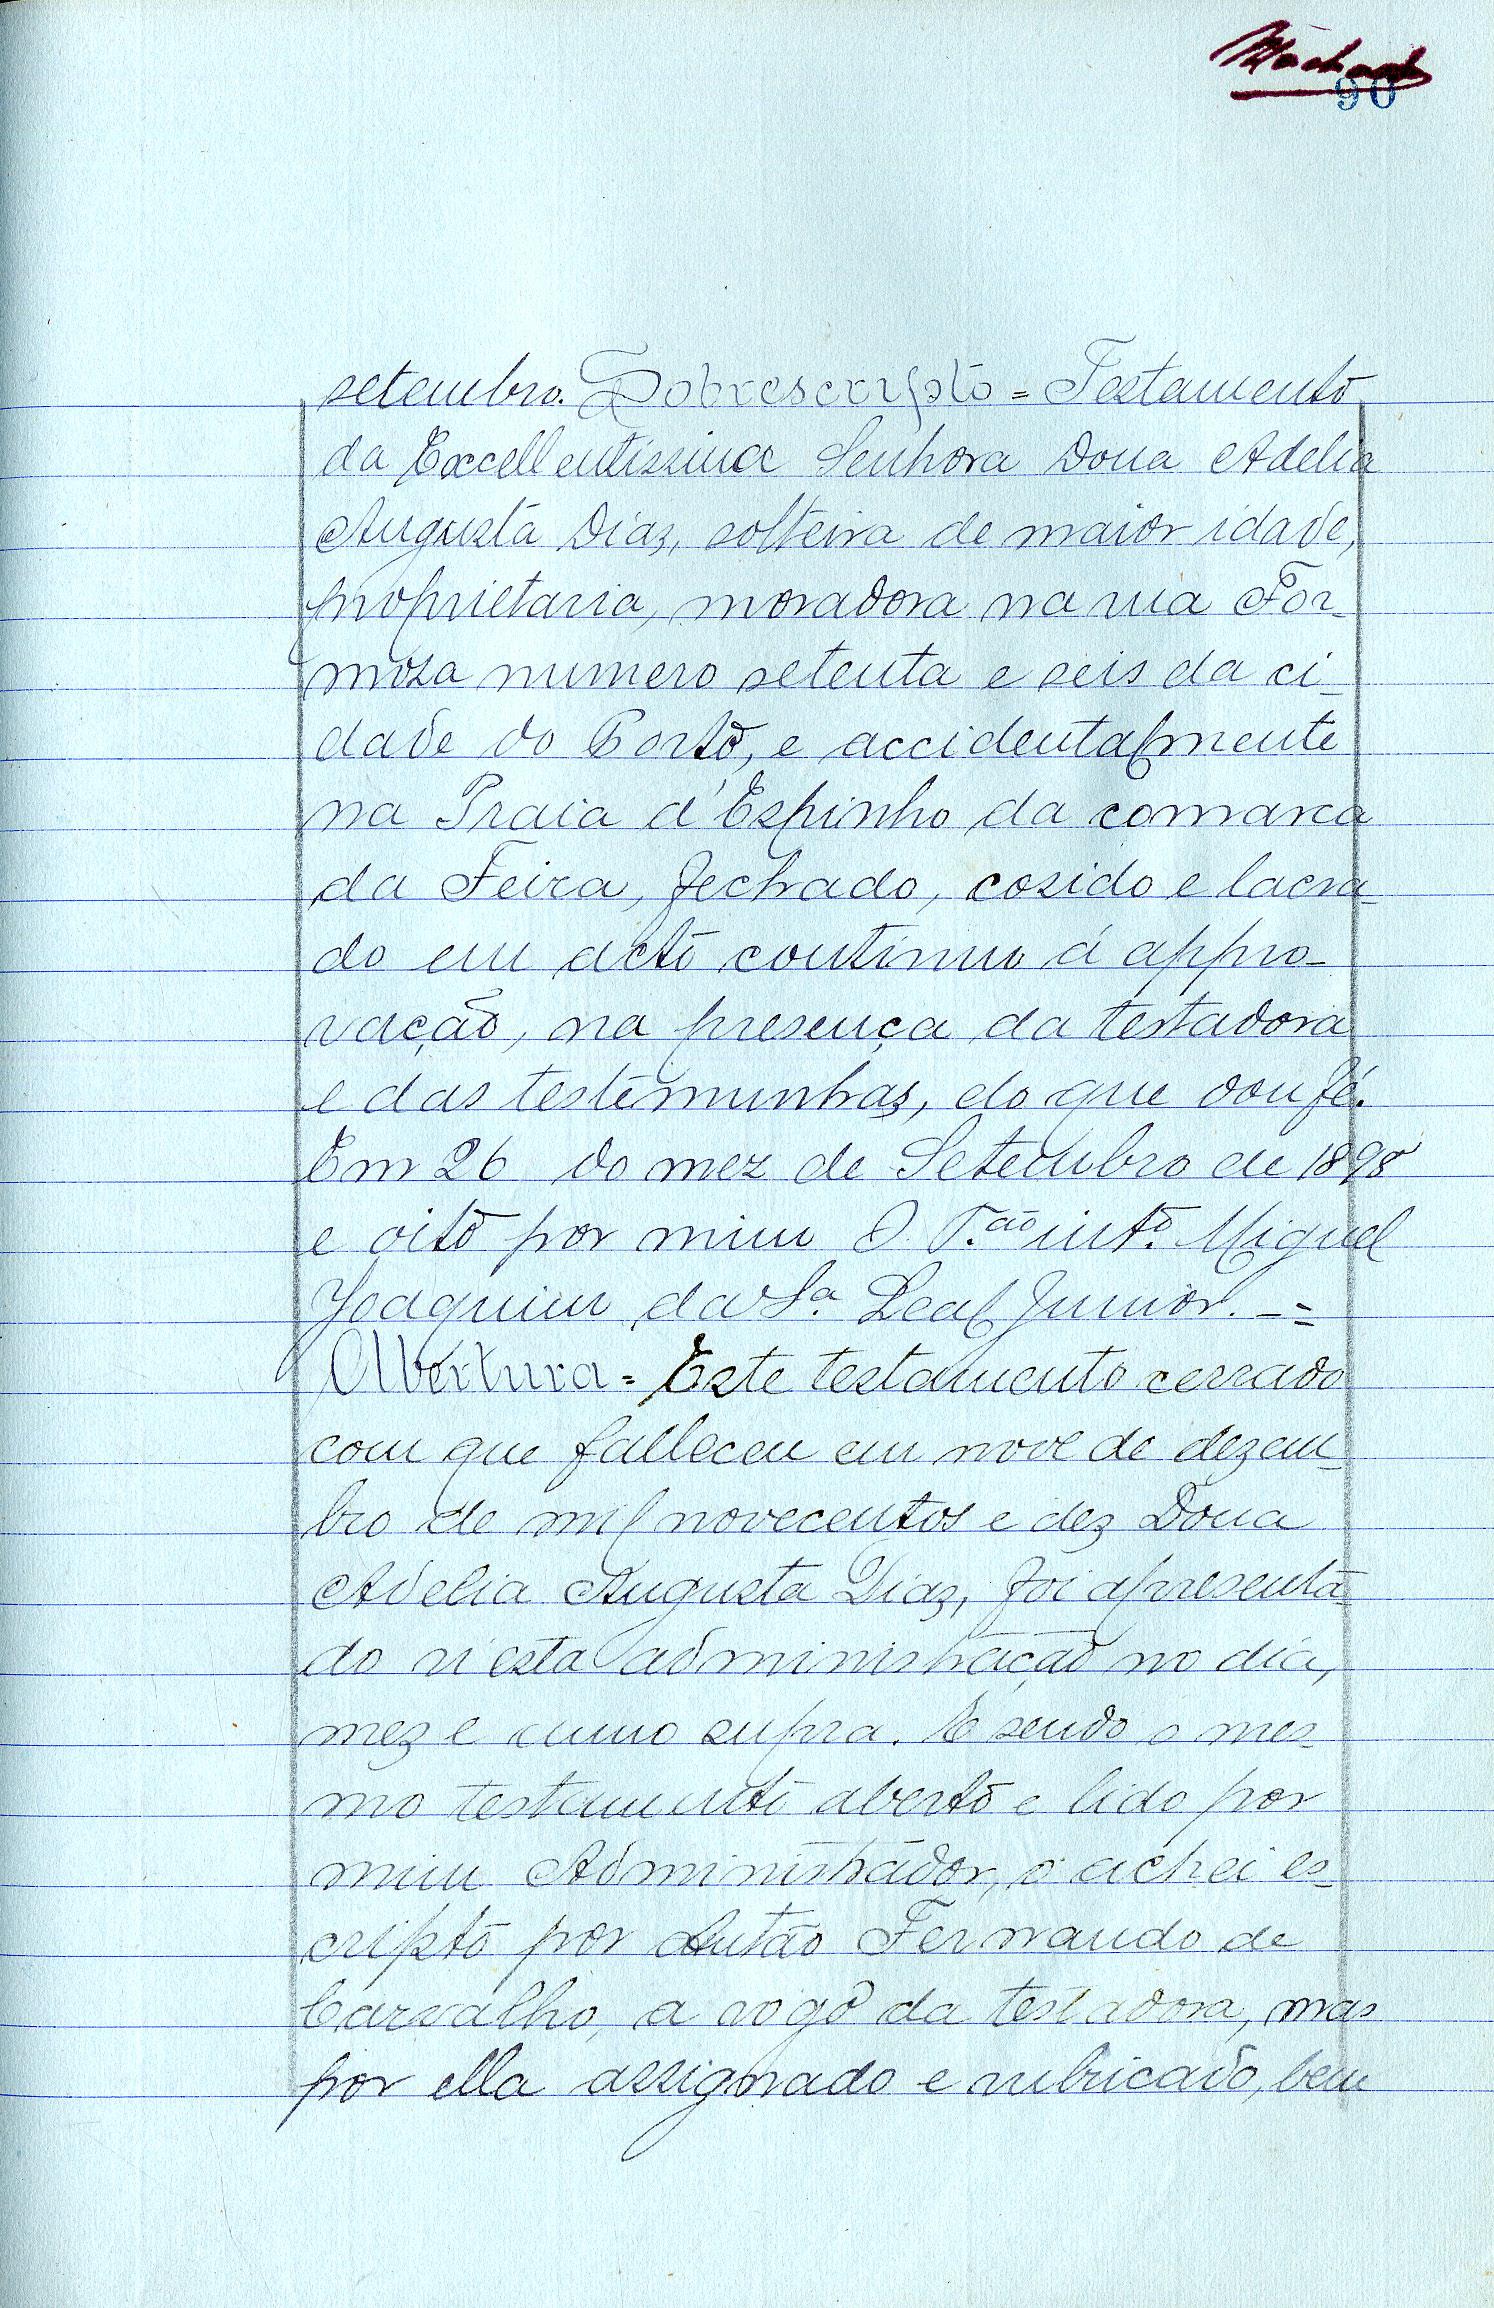 Machado
90
setembro. Sobrescripto = Testamento
da Excellentissima Senhora Dona Adelia
Augusta Diaz, solteira de maior idade,
proprietaria, moradora na rua For-
moza numero setenta e seis da ci-
dade do Porto, e accidentalmente
na Praia d'Espinho da comarca
da Feira, fechado, cosido e lacra-
do em acto continuo á appro-
vação, na presença da testadora
e das testemunhas, do que dou fé.
Em 26 do mez de Setembro de 1898
e oito por mim O T.ão int.º Miguel
Joaquim da S.a Leal Junior. - =
Abertura = Este testamento cerrado
com que falleceu em nove de dezem-
bro de mil novecentos e dez Dona
Adelia Augusta Diaz, foi apresenta-
do n'esta administração no dia,
mez e anno supra. E sendo o mes-
mo testamento aberto e lido por
mim Administrador, o achei es-
cripto por Antão Fernando de
Carvalho, a rogo da testadora, mas
por ella assignado e rubricado, bem